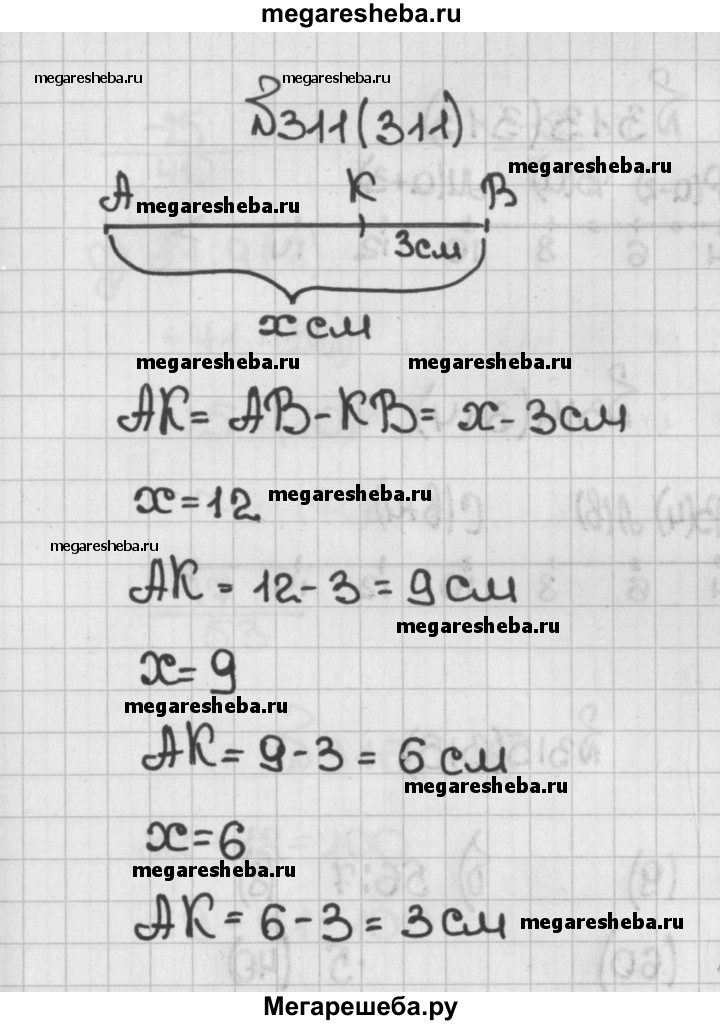 megaresheba.ru
megaresheba.ru megaresheba.ru
№311(311)
megaresheba.ru
A K B
megaresheba.ru
3см
x см
megaresheba.ru megaresheba.ru
AK= AB-KB= x-3см
x=12 megaresheba.ru
megaresheba.ru
AK = 12-3=9см
megaresheba.ru
x=9
megaresheba.ru
AK=9-3=6см
megaresheba.ru
x=6
megaresheba.ru
AK=6-3=3см megaresheba.ru
Мегарешеба.ру